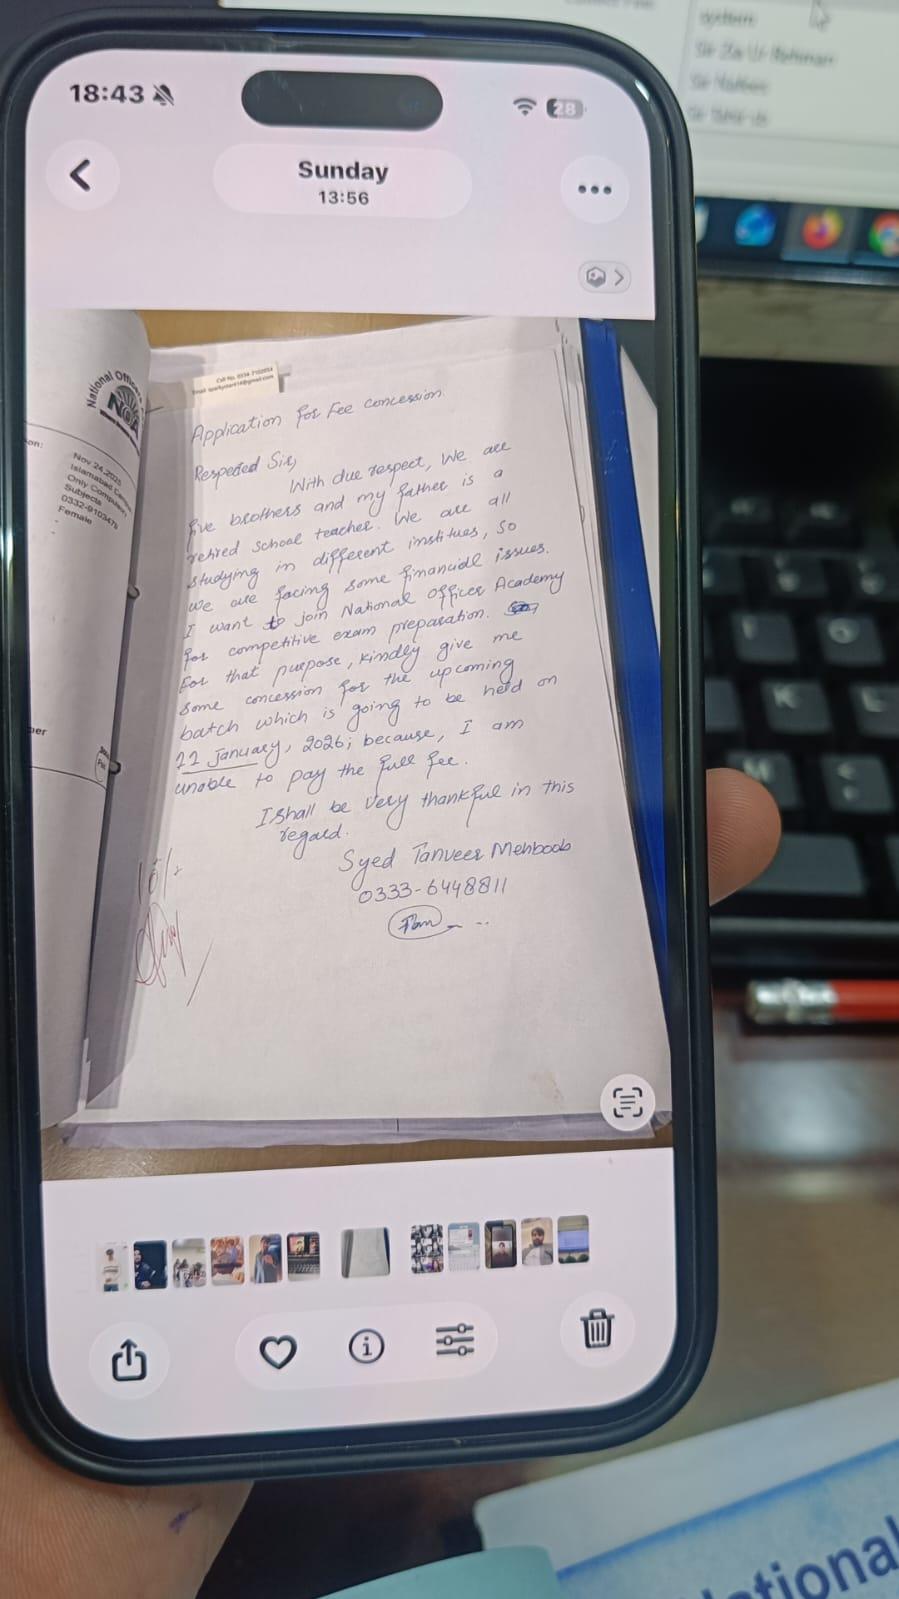 system
Sir Zia Ur Rehman
Sir Nafees
18:43
28
Sunday
13:56
National Offic
NOA
on:
Nov 24,2025
Islamabad
Only Compulsory
Subjects
0332-9103479
Female
Cell No. 0334-7102054
Application for Fee concession
Respected Sir,
With due respect, We are
five brothers and my father is a
retired school teacher. We are all
studying in different institues, so
we are facing some financial issues.
I want to join National officer Academy
for competitive exam preparation.
For that purpose, kindly give me
some concession for the upcoming
batch which is going to be held on
22 January, 2026; because, I am
unable to pay the full fee.
I shall be very thankful in this
regard.
Syed Tanveer Mehboob
0333-6448811
Tan
ational